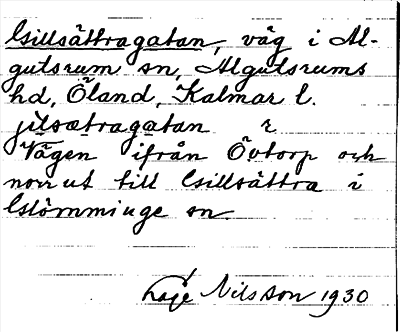 Gillsättragatan, väg i Al-
gutsrum sn, Algutsrums
hd, Öland, Kalmar l.
jilsætragatan r
Vägen ifrån Övtorp och
norrut till Gillsättra i
Glömminge sn.
Tage Nilsson 1930